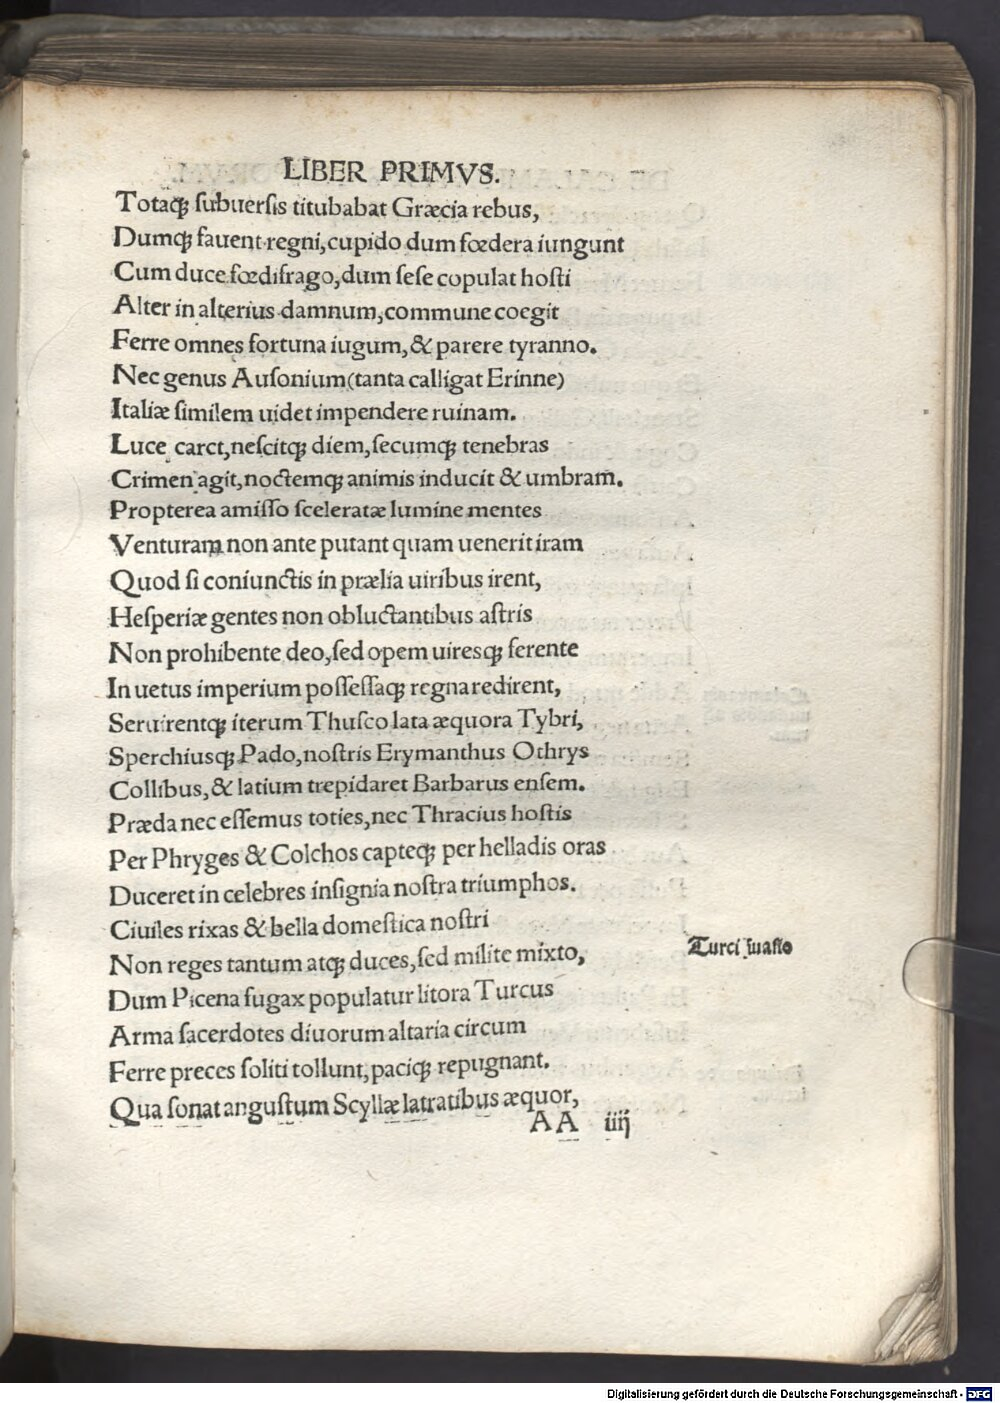 LIBER PRIMVS.
Totaqꝫ ſubuerſis titubabat Græcia rebus,
Dumqꝫ fauent regni, cupido dum fœdera iungunt
Cum duce fœdifrago, dum ſeſe copulat hoſti
Alter in alterius damnum, commune coegit
Ferre omnes fortuna iugum, & parere tyranno.
Nec genus Auſonium (tanta calligat Erinne)
Italiæ ſimilem uidet impendere ruinam.
Luce caret, neſcitqꝫ diem, ſecumqꝫ tenebras
Crimen agit, noctemqꝫ animis inducit & umbram.
Propterea amiſſo ſceleratæ lumine mentes
Venturam non ante putant quam uenerit iram
Quod ſi coniunctis in prælia uiribus irent,
Heſperiæ gentes non obluctantibus aſtris
Non prohibente deo, ſed opem uiresqꝫ ferente
In uetus imperium poſſeſſaqꝫ regna redirent,
Seruirentqꝫ iterum Thuſco lata æquora Tybri,
Sperchiusqꝫ Pado, noſtris Erymanthus Othrys
Collibus, & latium trepidaret Barbarus enſem.
Præda nec eſſemus toties, nec Thracius hoſtis
Per Phryges & Colchos capteqꝫ per helladis oras
Duceret in celebres inſignia noſtra triumphos.
Ciuiles rixas & bella domeſtica noſtri
Non reges tantum atqꝫ duces, ſed milite mixto,
Turci ſuaſio
Dum Picena fugax populatur litora Turcus
Arma ſacerdotes diuorum altaria circum
Ferre preces ſoliti tollunt, paciqꝫ repugnant.
Qua ſonat anguſtum Scyllæ latratibus æquor,
AA iiij
Digitalisierung gefördert durch die Deutsche Forschungsgemeinschaft - DFG